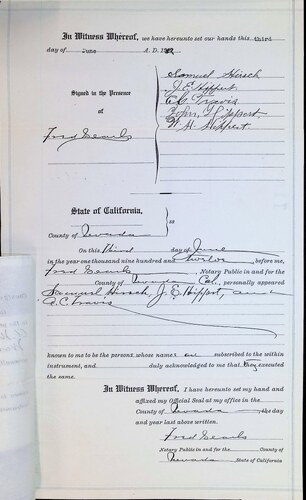 In Witness Whereof, we have hereunto set our hands this third
day of June A. D. 1912.
Samuel Hirsch
J. E. Hippert
A. C. Travis
John F. Hippert
W. H. Hippert.
Signed in the Presence
of
Fred Searls
State of California,
County of Nevada } ss
On this third day of June
in the year one thousand nine hundred and twelve before me,
Fred Searls, Notary Public in and for the
County of Nevada Cal, personally appeared
Samuel Hirsch, J. E. Hippert, and
A. C. Travis
known to me to be the persons whose names are subscribed to the within
instrument, and duly acknowledged to me that they executed
the same.
In Witness Whereof, I have hereunto set my hand and
affixed my Official Seal at my office in the
County of Nevada the day
and year last above written.
Fred Searls
Notary Public in and for the County of
Nevada State of California